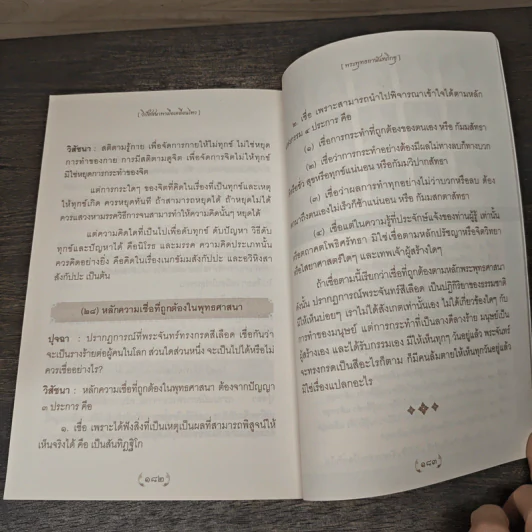 วิสัชนา : สติตามรู้กาย เพื่อจัดการกายให้ไม่ทุกข์ ไม่ใช่หยุด
การทำของกาย การมีสติตามดูจิต เพื่อจัดการจิตไม่ให้ทุกข์
มิใช่หยุดการกระทำของจิต
แต่การกระใดๆ ของจิตที่คิดในเรื่องที่เป็นทุกข์และเหตุ
ให้ทุกข์เกิด ควรหยุดทันที ถ้าสามารถหยุดได้ ถ้าหยุดไม่ได้
ควรแสวงหามรรควิธีการจนสามารถทำให้ความคิดนั้นๆ หยุดได้
แต่ความคิดใดที่เป็นไปเพื่อดับทุกข์ ดับปัญหา วิธีดับ
ทุกข์และปัญหาได้ คือนิโรธ และมรรค ความคิดประเภทนั้น
ควรคิดอย่างยิ่ง คือคิดในเรื่องเนกขัมมสังกัปปะ และอวิหิงสา
สังกัปปะ เป็นต้น
(๒๘) หลักความเชื่อที่ถูกต้องในพุทธศาสนา
ปุจฉา : ปรากฏการณ์ที่พระจันทร์ทรงกรดสีเลือด เชื่อกันว่า
จะเป็นรางร้ายต่อผู้คนในโลก ส่วนใดส่วนหนึ่ง จะเป็นไปได้หรือไม่
ควรเชื่ออย่างไร?
วิสัชนา : หลักความเชื่อที่ถูกต้องในพุทธศาสนา ต้องจากปัญญา
๓ ประการ คือ
๑. เชื่อ เพราะได้ฟังสิ่งที่เป็นเหตุเป็นผลที่สามารถพิสูจน์ให้
เห็นจริงได้ คือ เป็นสันทิฏฐิโก
๑๘๒
๒. เชื่อ เพราะสามารถนำไปพิจารณาเข้าใจได้ตามหลัก
ธรรม ๔ ประการ คือ
(๑) เชื่อการกระทำที่ถูกต้องของตนเอง หรือ กัมมสัทธา
(๒) เชื่อว่าการกระทำอย่างต้องมีผลไม่ทางลบก็ทางบวก
ชั่ว สุขหรือทุกข์แน่นอน หรือกัมมวิปากสัทธา
(๓) เชื่อว่าผลการทำทุกอย่างไม่ว่าบวกหรือลบ ต้อง
มาถึงตนเองไม่เร็วก็ช้าแน่นอน หรือ กัมมสกตาสัทธา
(๔) เชื่อแต่ในความรู้ที่ประจักษ์แจ้งของท่านผู้รู้ เท่านั้น
ตถาคตโพธิศรัทธา มิใช่เชื่อตามหลักปรัชญาหรือจิตวิทยา
ไสยาศาสตร์ใดๆ และเทพเจ้าผู้สร้างใดๆ
ถ้าเชื่อตามนี้เรียกว่าเชื่อที่ถูกต้องตามหลักพระพุทธศาสนา
ดังนั้น ปรากฏการณ์พระจันทร์สีเลือด เป็นปฏิกิริยาของธรรมชาติ
มีให้เห็นบ่อยๆ เราไม่ได้สังเกตเท่านั้นเอง ไม่ได้เกี่ยวเรื่องใดๆ กับ
การทำของมนุษย์ แต่การกระทำที่เป็นลางดีลางร้าย มนุษย์เป็น
ผู้สร้างเอง และได้รับกรรมเอง มีให้เห็นทุกๆ วันอยู่แล้ว พระจันทร์
จะทรงกรดเป็นสีอะไรก็ตาม ก็มีคนล้มตายให้เห็นทุกวันอยู่แล้ว
มิใช่เรื่องแปลกอะไร
๑๘๓